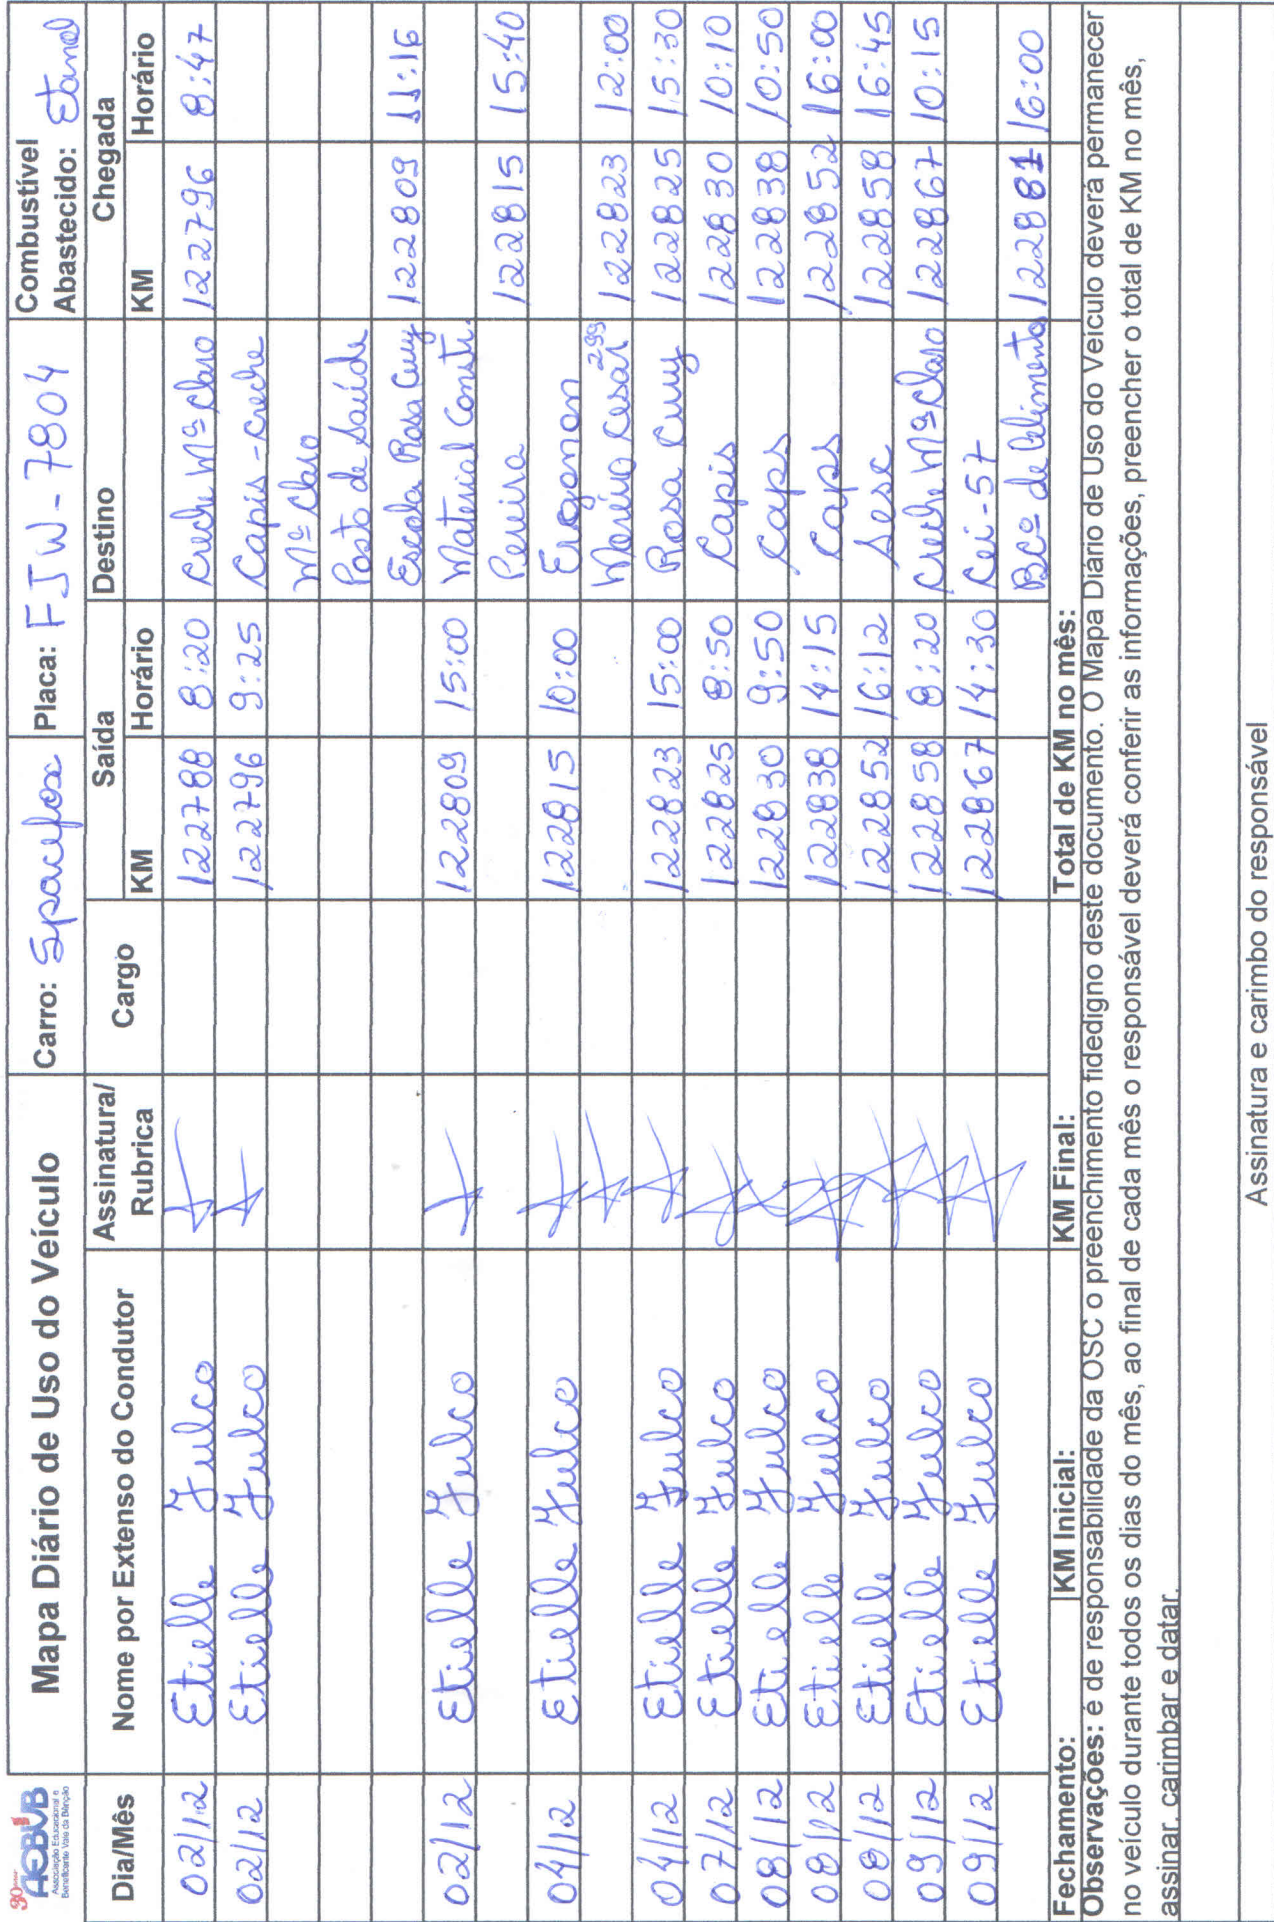 30 anos
AEBVB
Associação Educacional e
Beneficente Vale da Bênção
Mapa Diário de Uso do Veículo
Carro: Spacefox
Placa: FJW-7804
Combustível
Abastecido: Etanol
Dia/Mês Nome por Extenso do Condutor Assinatura/ Rubrica Cargo Saída Destino Chegada
KM Horário KM Horário
02/12 Etielle Fulco 122788 8:20 Creche Mª Claro 122796 8:47
02/12 Etielle Fulco 122796 9:25 Capis - Creche
Mª Claro
Posto de Saúde
Escola Rosa Cury 122809 11:16
02/12 Etielle Fulco 122809 15:00 Material Constr.
Pereira 122815 15:40
04/12 Etielle Fulco 122815 10:00 Ergonon
Mário Cesar 299 122823 12:00
04/12 Etielle Fulco 122823 15:00 Rosa Cury 122825 15:30
07/12 Etielle Fulco 122825 8:50 Capis 122830 10:10
08/12 Etielle Fulco 122830 9:50 Caps 122838 10:50
08/12 Etielle Fulco 122838 14:15 Caps 122852 16:00
08/12 Etielle Fulco 122852 16:12 Sesc 122858 16:45
09/12 Etielle Fulco 122858 8:20 Creche Mª Claro 122867 10:15
09/12 Etielle Fulco 122867 14:30 Cei-57
Bcº de Alimento 122881 16:00
Fechamento: KM Inicial: KM Final: Total de KM no mês:
Observações: é de responsabilidade da OSC o preenchimento fidedigno deste documento. O Mapa Diário de Uso do Veículo deverá permanecer
no veículo durante todos os dias do mês, ao final de cada mês o responsável deverá conferir as informações, preencher o total de KM no mês,
assinar, carimbar e datar.
Assinatura e carimbo do responsável